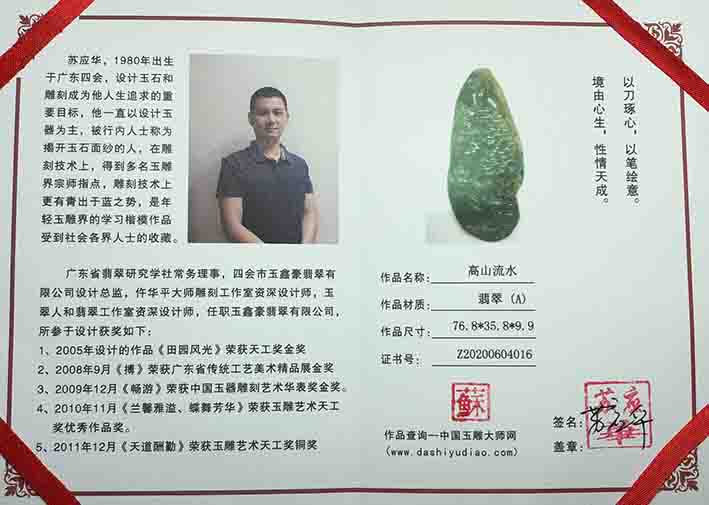 苏应华，1980年出生
于广东四会，设计玉石和
雕刻成为他人生追求的重
要目标，他一直以设计玉
器为主，被行内人士称为
揭开玉石面纱的人，在雕
刻技术上，得到多名玉雕
界宗师指点，雕刻技术上
更有青出于蓝之势，是年
轻玉雕界的学习楷模作品
受到社会各界人士的收藏。
广东省翡翠研究学社常务理事，四会市玉鑫豪翡翠有
限公司设计总监，仵华平大师雕刻工作室资深设计师，玉
翠人和翡翠工作室资深设计师，任职玉鑫豪翡翠有限公司，
所参于设计获奖如下：
1、2005年设计的作品《田园风光》荣获天工奖金奖
2、2008年9月《搏》荣获广东省传统工艺美术精品展金奖
3、2009年12月《畅游》荣获中国玉器雕刻艺术华表奖金奖。
4、2010年11月《兰馨雅溢、蝶舞芳华》荣获玉雕艺术天工
奖优秀作品奖。
5、2011年12月《天道酬勤》荣获玉雕艺术天工奖铜奖
以刀琢心，以笔绘意。
境由心生，性情天成。
作品名称：高山流水
作品材质：翡翠 (A)
作品尺寸：76.8*35.8*9.9
证书号：Z20200604016
蘇
作品查询—中国玉雕大师网
（www.dashiyudiao.com）
签名：苏应华
盖章：苏应华